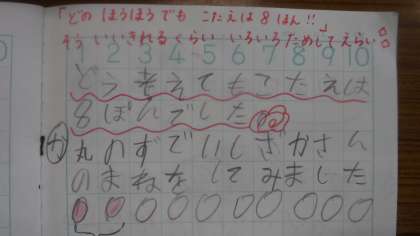 「どの ほうほうでも こたえは 8ほん!!」
そう いいきれるくらい いろいろためしてえらい。
1 2 3 4 5 6 7 8 9 10
どう考えてもこたえは
8ぽんでした
か 丸のずでいしざかさん
のまねをしてみました